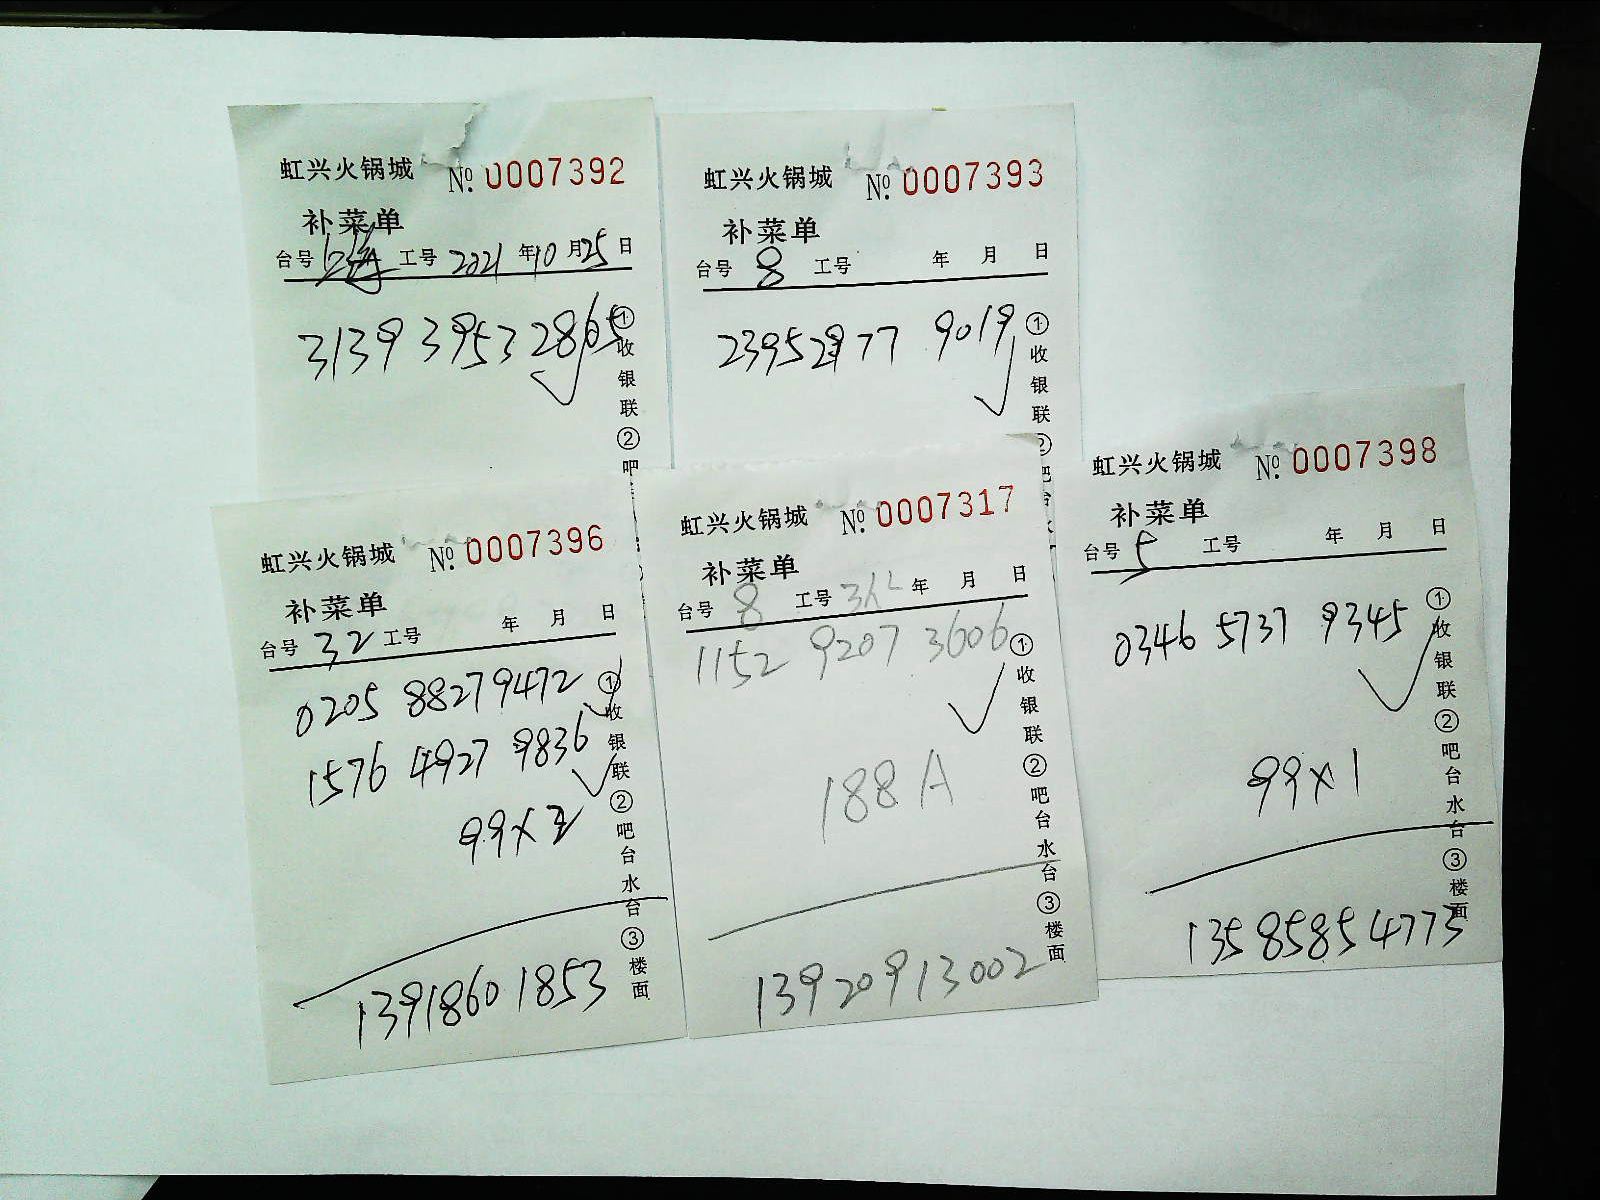 虹兴火锅城 № 0007392
补菜单
台号 工号 2021 年 10 月 25 日
3139 3953 2865
①收银联②吧
虹兴火锅城 № 0007393
补菜单
台号 8 工号 年 月 日
2395 2977 9019
①收银联②吧台水
虹兴火锅城 № 0007396
补菜单
台号 32 工号 年 月 日
0205 88279472
1576 4927 9836
99×2
13918601853
①收银联②吧台水台③楼面
虹兴火锅城 № 0007317
补菜单
台号 8 工号 年 月 日
1152 9207 3606
188 A
13920913002
①收银联②吧台水台③楼面
虹兴火锅城 № 0007398
补菜单
台号 5 工号 年 月 日
0346 5737 9345
99×1
13585854773
①收银联②吧台水台③楼面